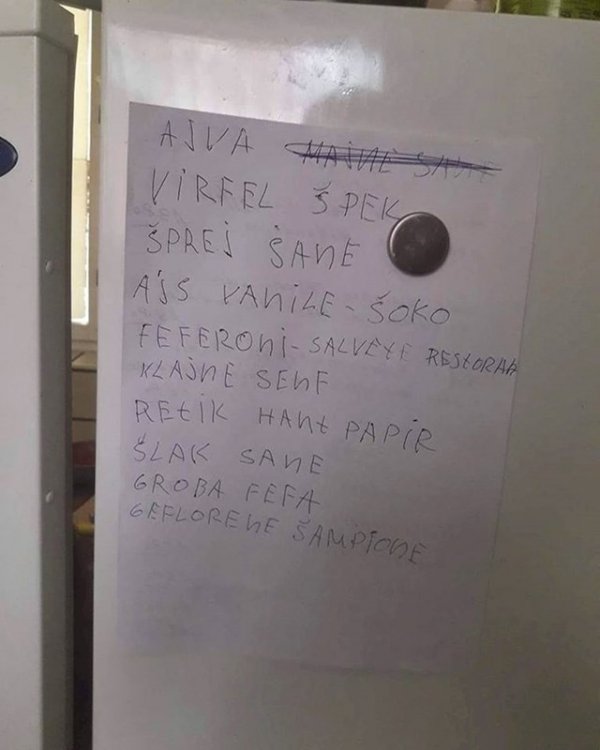 AJVA MAJNE SANE
VIRFEL ŠPEK
ŠPREJ ŠANE
AJS VANILE - ŠOKO
FEFERONI - SALVETE RESTORAN
KLAJNE SENF
RETIK HANT PAPIR
ŠLAK SANE
GROBA FEFA
GEFLORENE ŠAMPIONE